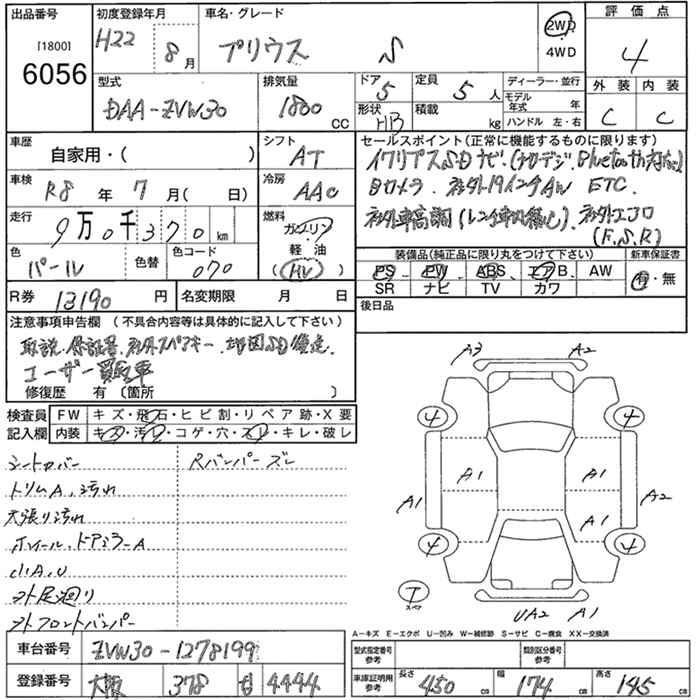 出品番号 初度登録年月 車名・グレード 2WD 評価点
[1800] H22 8月 プリウス S 4WD 4
6056
型式 排気量 ドア 5 定員 5人 ディーラー・並行 外装 内装
DAA-ZVW30 1800CC 形状 HB 積載 kg モデル年式 年 C C
ハンドル 左・右
車歴 シフト セールスポイント(正常に機能するものに限ります)
自家用・( ) AT イクリプスSDナビ.(ナカデジ.Bluetooth内など)
車検 R8年 7月( 日) 冷房 AAC Bカメラ.社外19インチAW ETC.
走行 9万0千370km 燃料 ガソリン 社外車高調 社外エアロ
軽・油 (F.S.R)
色 パール 色替 色コード 070 HV 装備品(純正品に限り丸をつけて下さい) 新車保証書
PS PW ABS エアB. AW 有・無
R券 13190円 名変期限 月 日 SR ナビ TV カワ
後日品
注意事項申告欄 (不具合内容等は具体的に記入して下さい)
取説.保証書.社外スペアキー.地図SD欠品
ユーザー買取車
修復歴 有 〔箇所 〕
検査員 FW キズ・飛石・ヒビ割・リペア跡・X要
記入欄 内装 キズ・汚レ・コゲ・穴・スレ・キレ・破レ
シートカバー Rバンパーズレ
トリムA.汚れ
天張り汚れ
ホイール.ドアミラーA
小A.U
ソト足廻り
ソトフロントバンパー
A3 A2
4 4
A1 A1
A1 A2
A1
4 4
T
スペア
UA2 A1
A-キズ E-エクボ U-凹み W-補修跡 S-サビ C-腐食 XX-交換済
車台番号 ZVW30-1278199 型式指定番号 参考 類別区分番号 参考
登録番号 大阪 378 せ 4444 車庫証明用 参考 長さ 450cm 幅 174cm 高さ 145cm